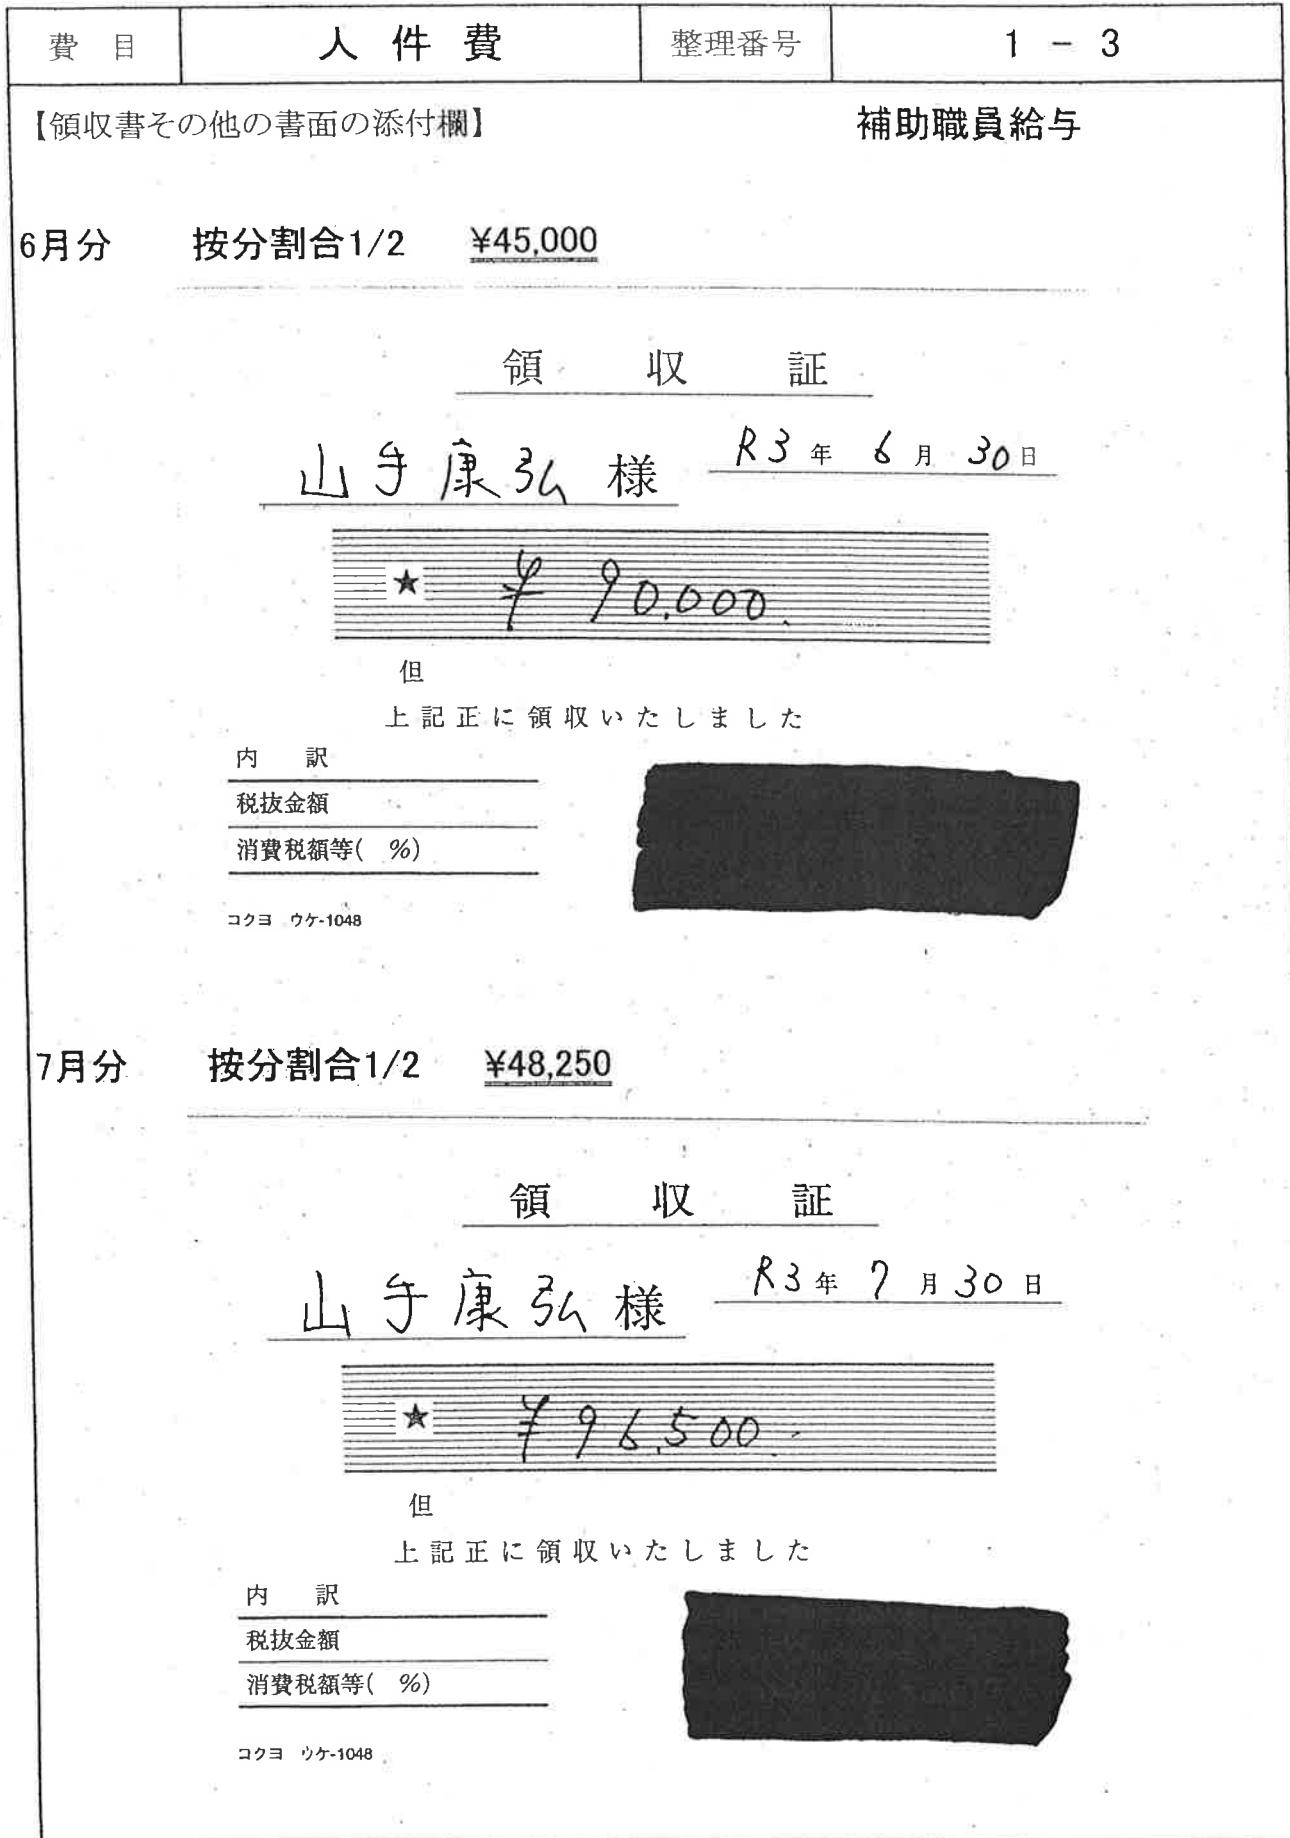 費 目 人 件 費 整理番号 1 － 3
【領収書その他の書面の添付欄】 補助職員給与
6月分 按分割合1/2 ¥45,000
領 収 証
山手康弘 様 R3年 6月 30日
★ ¥90,000.
但
上記正に領収いたしました
内 訳
税抜金額
消費税額等( %)
コクヨ ウケ-1048
7月分 按分割合1/2 ¥48,250
領 収 証
山手康弘 様 R3年 7月 30日
★ ¥96,500.-
但
上記正に領収いたしました
内 訳
税抜金額
消費税額等( %)
コクヨ ウケ-1048